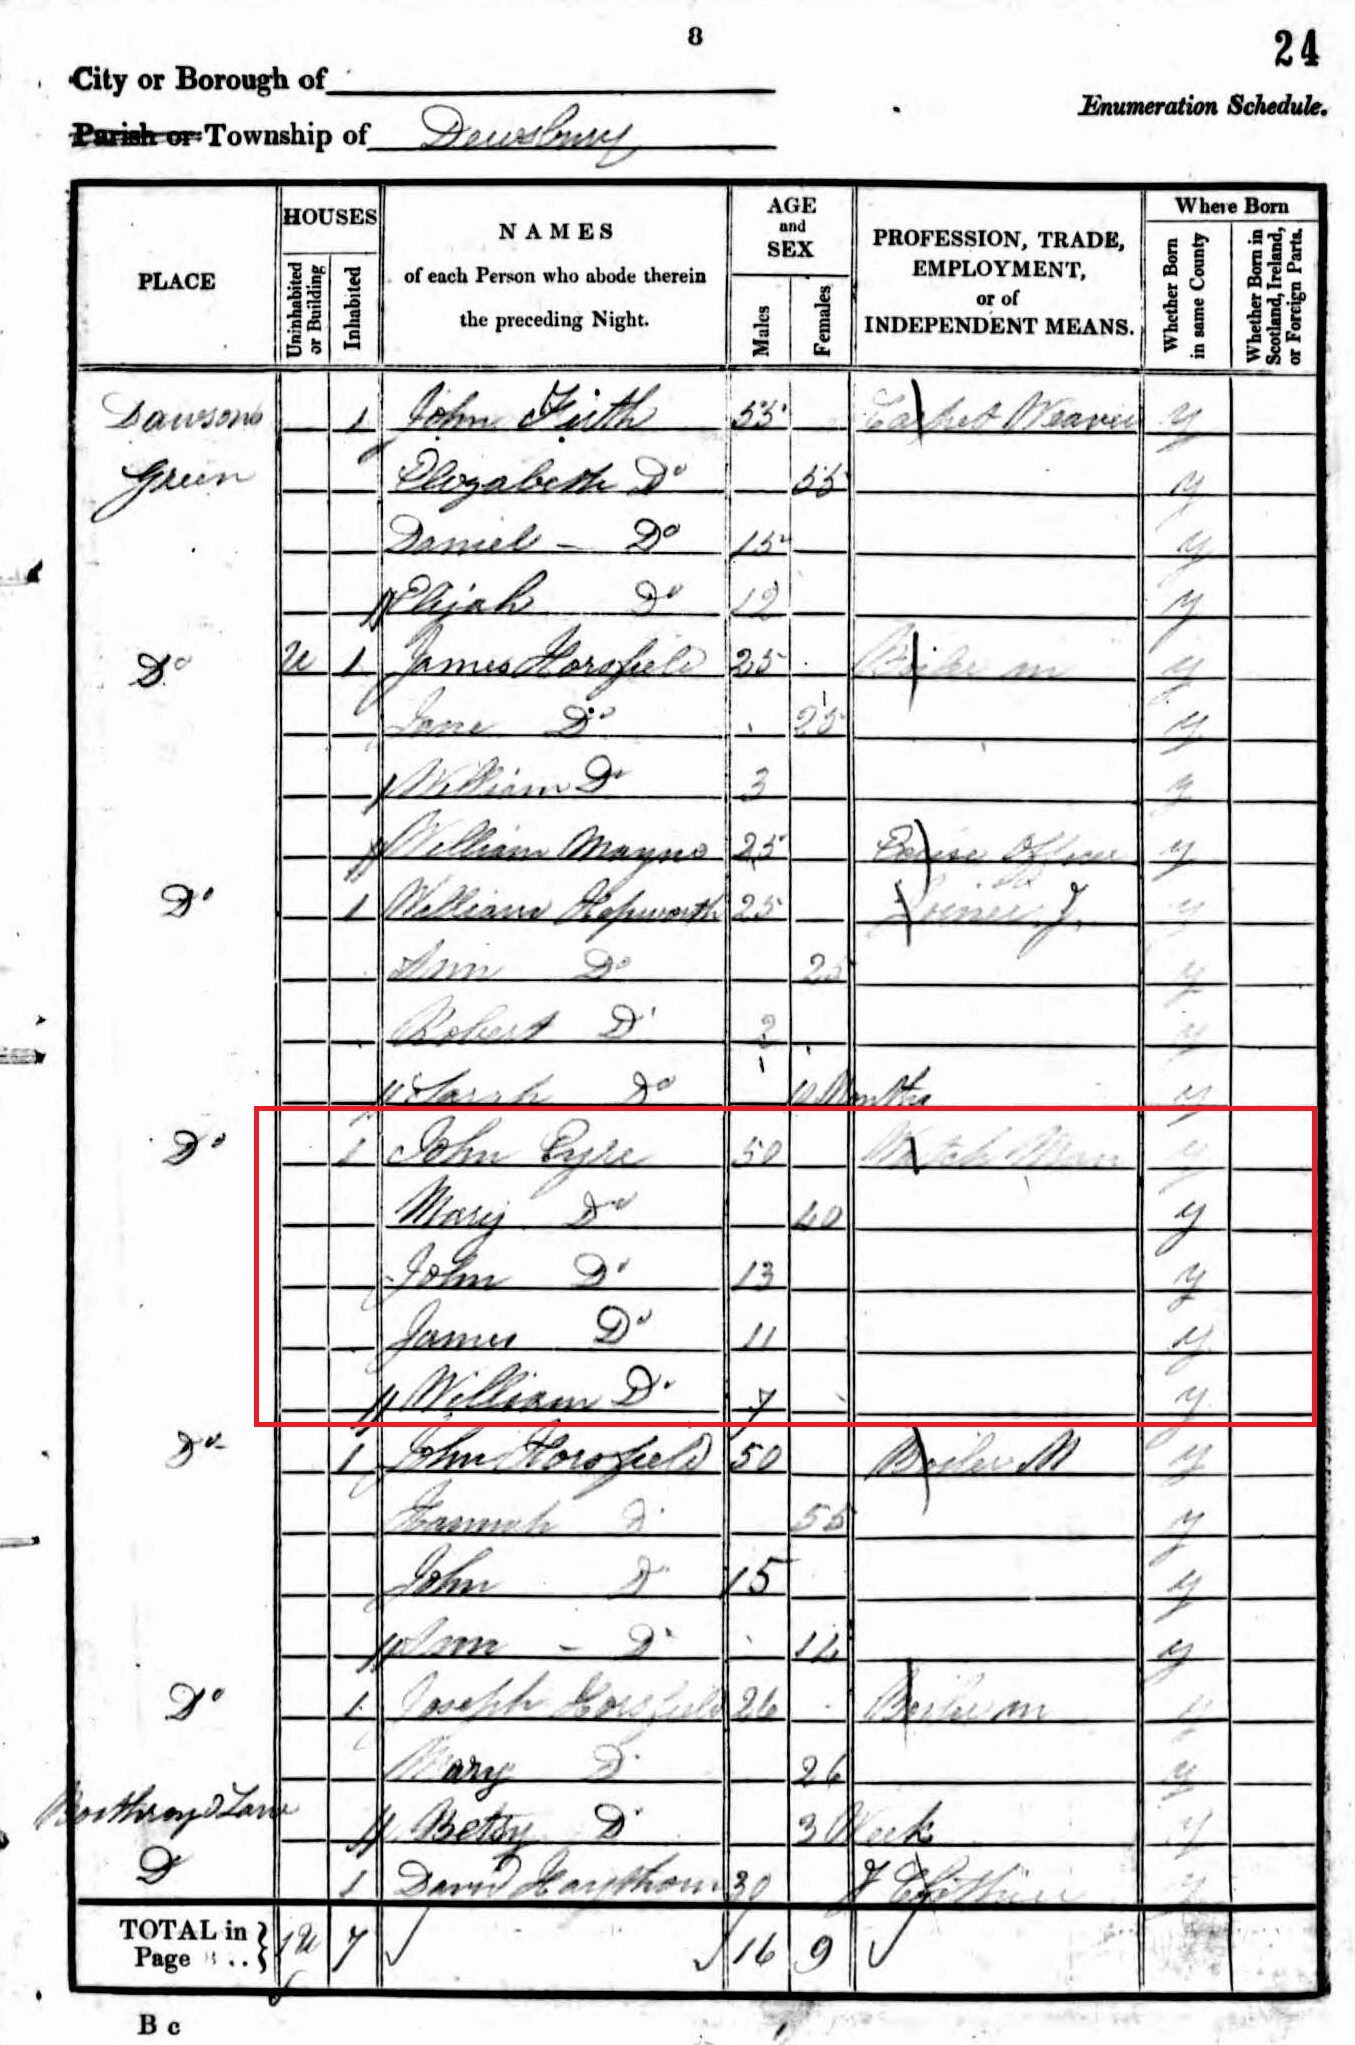 8
24
City or Borough of
Enumeration Schedule.
Parish or Township of Dewsbury
PLACE
HOUSES
Uninhabited or Building
Inhabited
NAMES
of each Person who abode therein
the preceding Night.
AGE and SEX
Males
Females
PROFESSION, TRADE,
EMPLOYMENT,
or of
INDEPENDENT MEANS.
Where Born
Whether Born in same County
Whether Born in Scotland, Ireland, or Foreign Parts.
Dawsons 1 John Firth 55 Carpet Weaver y
Green Elizabeth Do 55 y
Daniel - Do 15 y
Elijah Do 12 y
Do U 1 James Horsfield 25 Boiler m y
Jane Do 25 y
William Do 3 y
William Mayne 25 Excise Officer y
Do 1 William Hepworth 25 Joiner J. y
Ann Do 25 y
Robert Do 2 y
Sarah Do 10 Months y
Do 1 John Eyre 50 Watch Man y
Mary Do 40 y
John Do 13 y
James Do 11 y
William Do 7 y
Do 1 John Horsfield 50 Boiler M y
Hannah D 55 y
John D 15 y
Ann - D 14 y
Do 1 Joseph Horsfield 26 Boiler m y
Mary D 26 y
Boothroyd Lane Betsy D 3 Week y
D 1 David 30 J Clothier y
TOTAL in Page 1U 7 16 9
B c